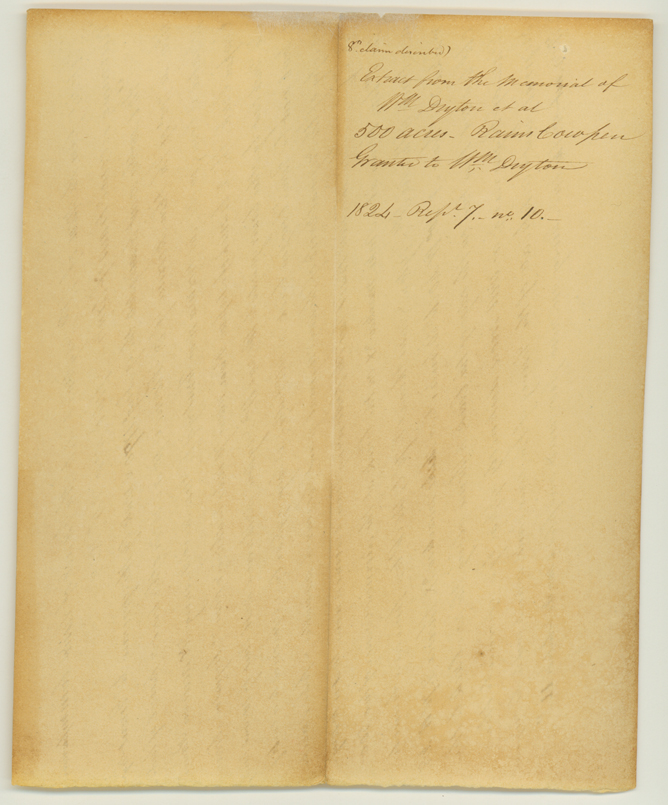 8th claim described)
Extract from the Memorial of
Wm Deyton et al
500 acres - Rains Cowpen
Granted to Wm Deyton
1824 - Rept. 7. - no. 10. -